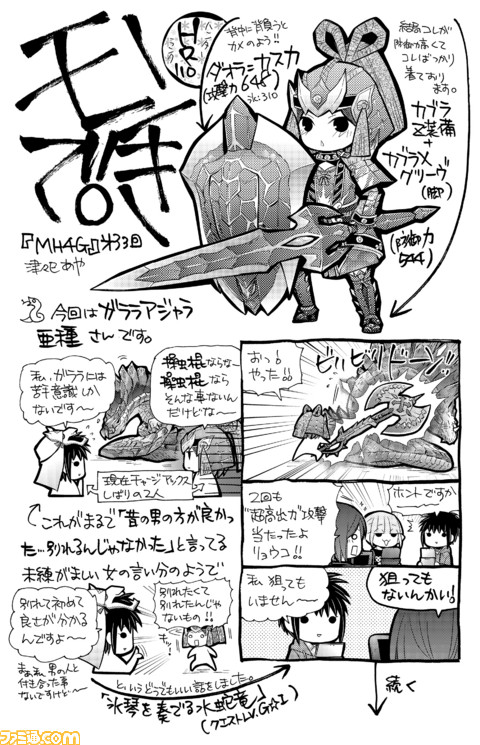 モン
ハン
『MH4G』第33回
津々巳あや
HR
110
背中に背負うと
カメのよう!!
ダオラ=カスカ
(攻撃力648
氷:310
結局コレが
防御高くて
コレばっかり
着ており
ます。
カブラ
Z装備
+
カブラX
グリーヴ
(脚)
(防御力
544)
今回はガララアジャラ
亜種さんです。
私、ガララには
苦手意識しか
ないです〜
操虫棍ならな〜
操虫棍なら
そんな事ないん
だけどな〜
現在チャージアックス
しばりの2人
これがまるで「昔の男の方が良かっ
た…別れるんじゃなかった」と言ってる
未練がましい女の言い分のようで
別れて初めて
良さが分かる
んですよ〜
まぁ、私、男の人と
付き合った事
ないですけど〜
別れたくて
別れたんじゃ
ないもの!!
というどうでもいい話をしました。
「氷琴を奏でる水蛇竜」
(クエストLv.G☆1)
おっ!
やった!!
ビリビリドーンッ
2回も
"超高出力"攻撃
当たったよ
リュウコ!!
ホントですか
私、狙ても
いません〜
狙っても
ないんかい!
続く
ファミ通.com